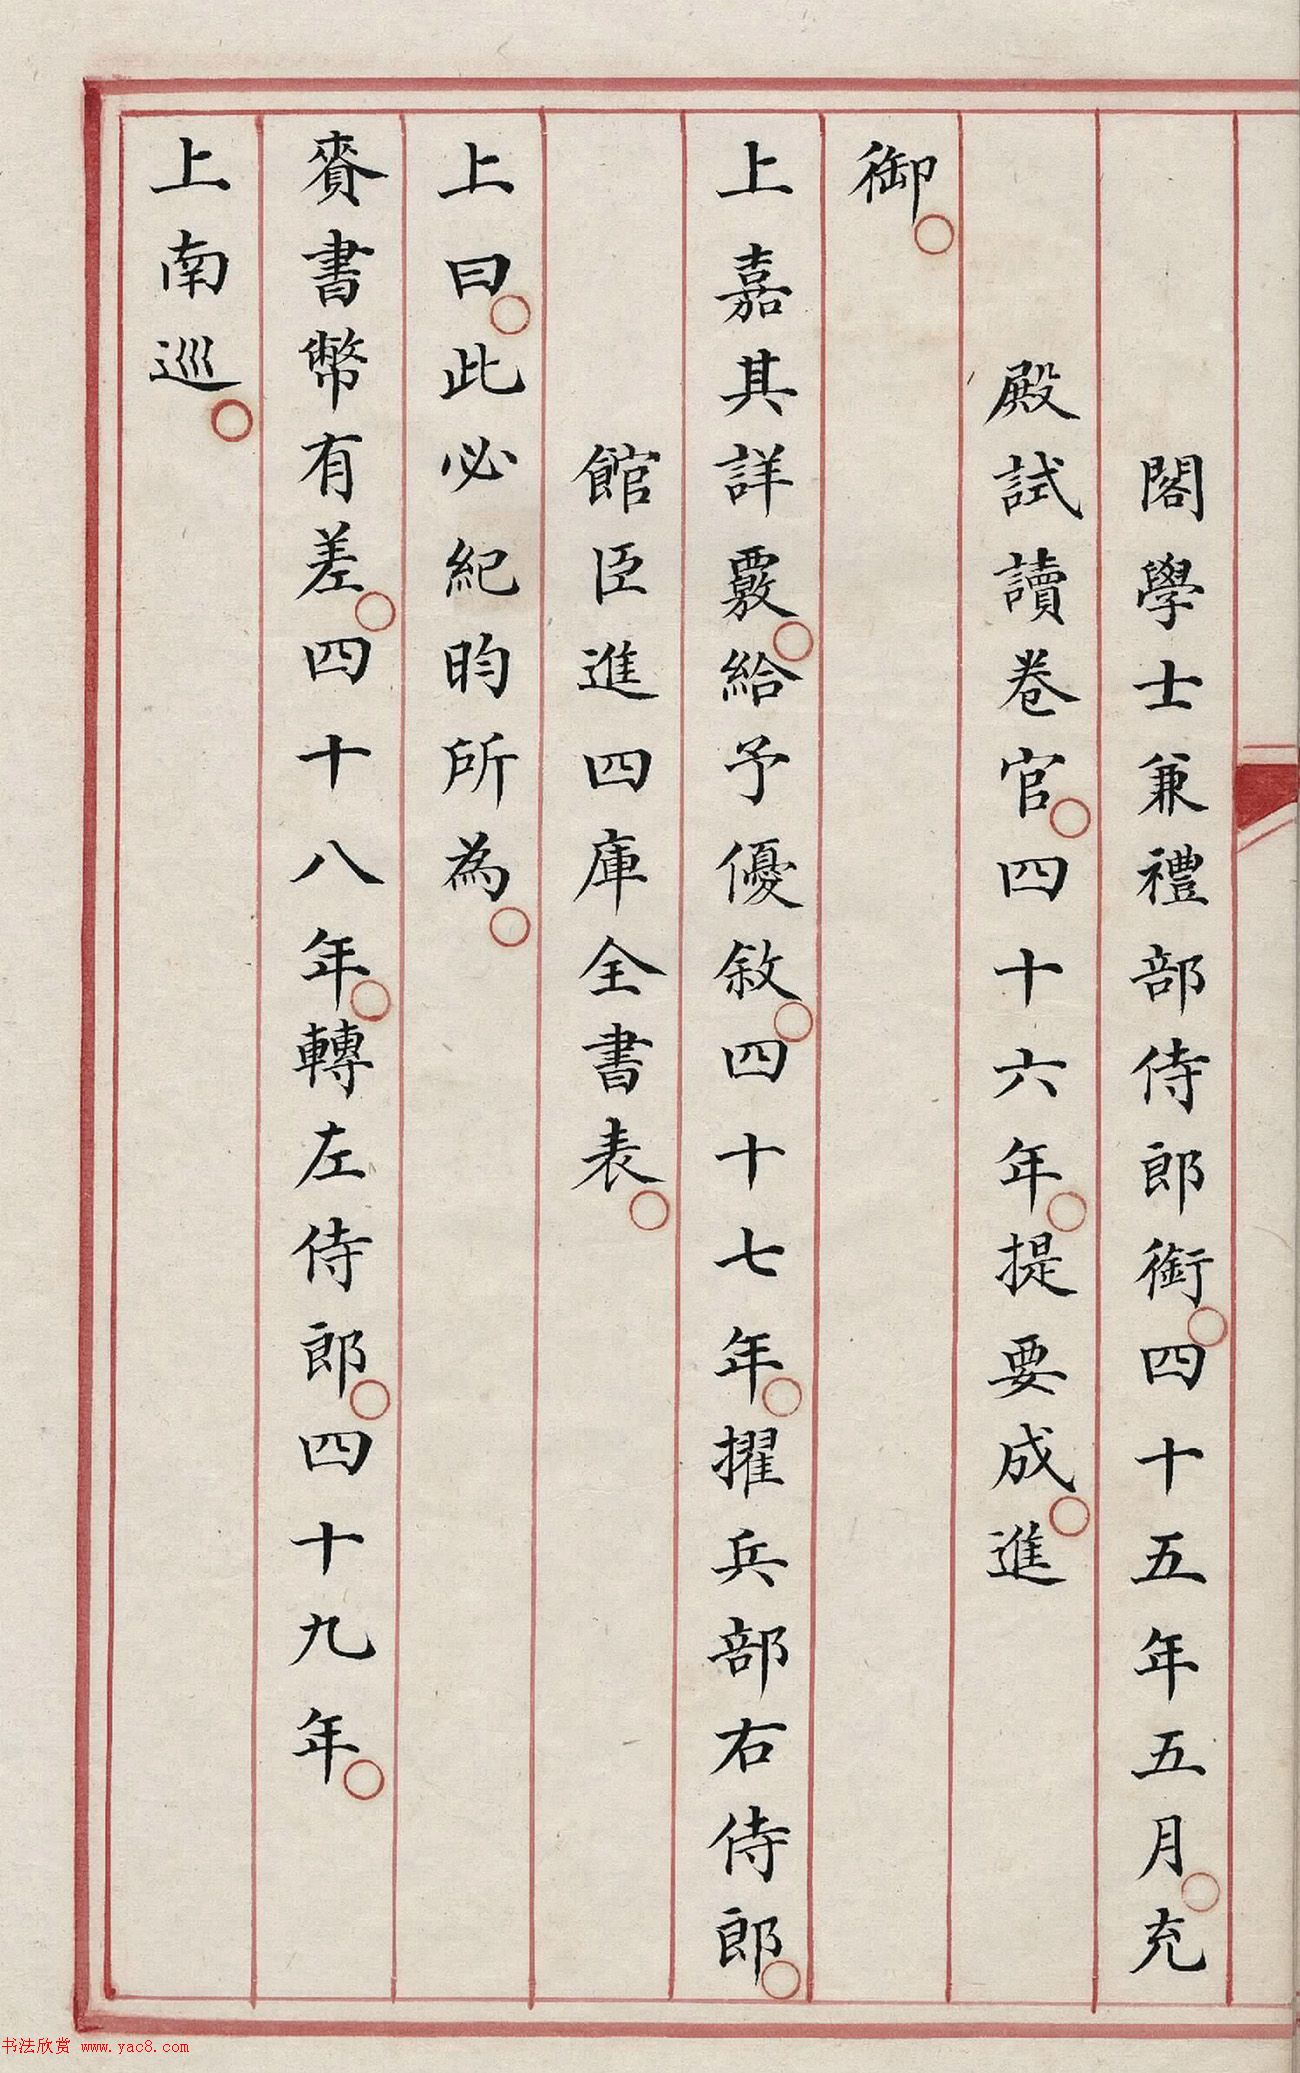 閣學士兼禮部侍郎銜。四十五年五月。充
殿試讀卷官。四十六年。提要成。進
御。
上嘉其詳覈。給予優敘。四十七年。擢兵部右侍郎。
館臣進四庫全書表。
上曰。此必紀昀所為。
賚書幣有差。四十八年。轉左侍郎。四十九年。
上南巡。
书法欣赏 www.yac8.com